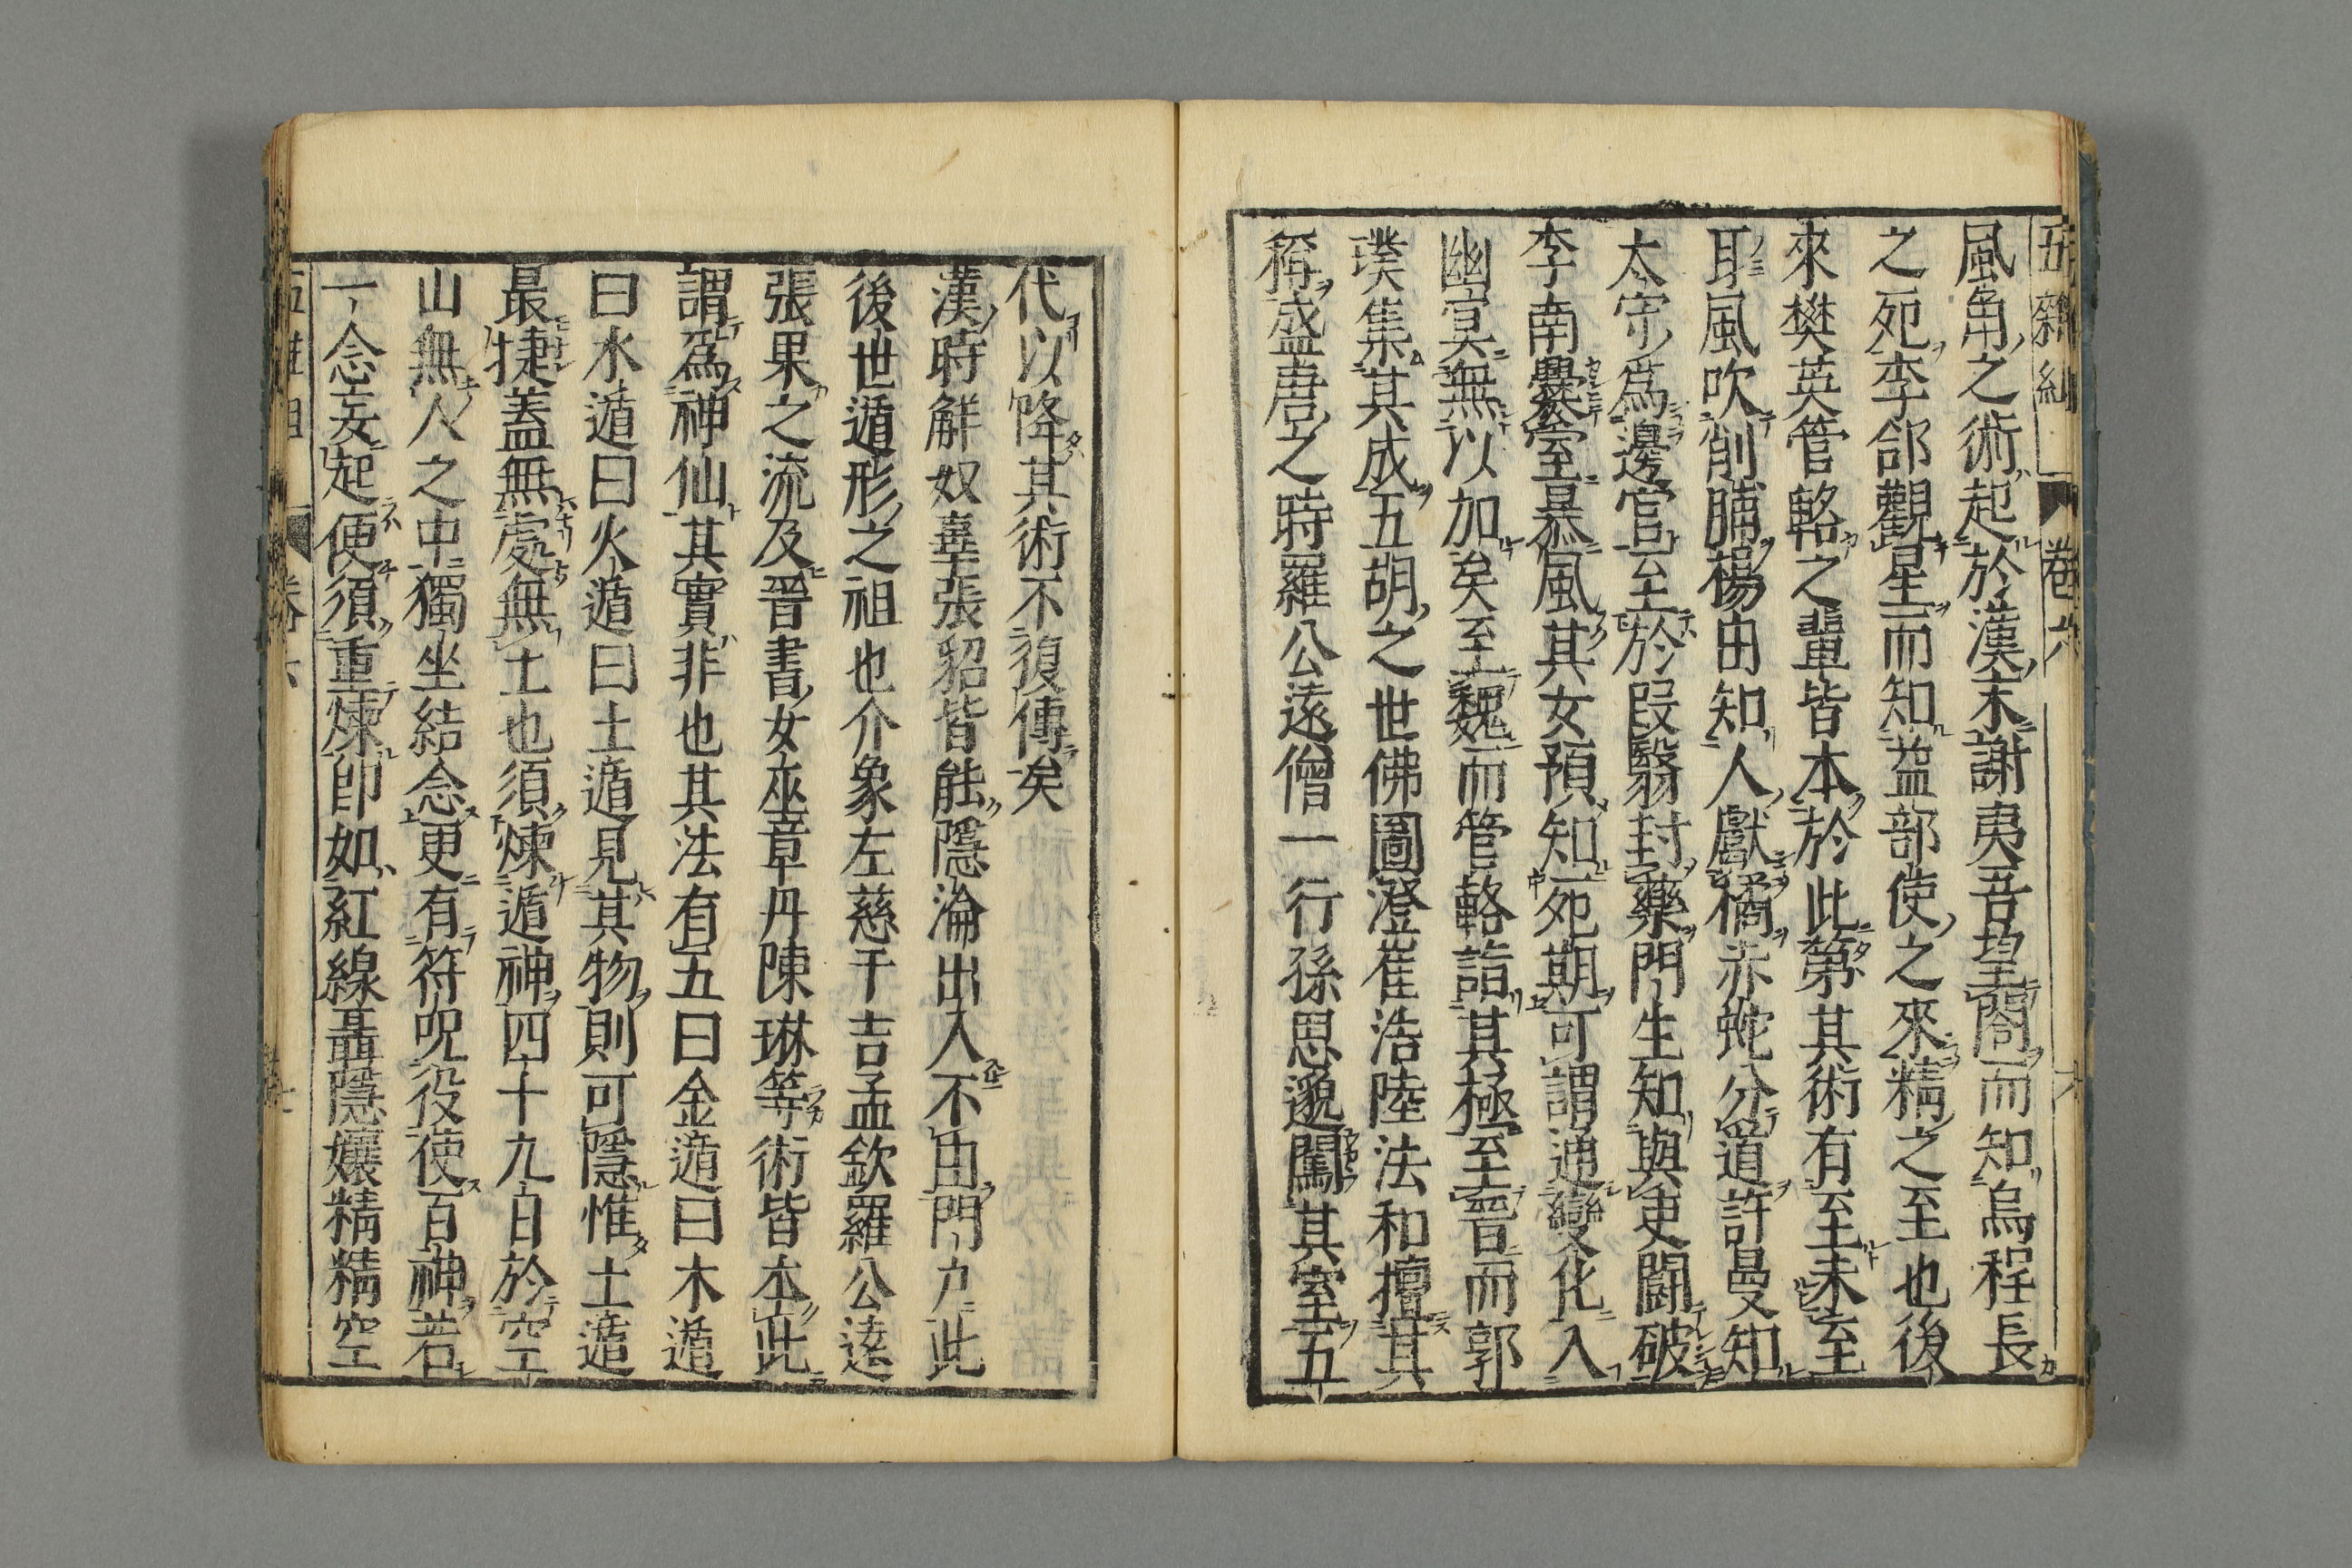 五雜組 卷六
風角之術起於漢末謝夷吾望閣而知烏程長
之死李郃觀星而知益部使之來精之至也後
來樊英管輅之輩皆本於此第其術有至未至
耳風吹削脯楊由知人獻橘赤蛇分道許曼知
太守爲邊官至於段翳封藥門生知與吏鬪破
李南爨室暴風其女預知死期可謂通變化入
幽冥無以加矣至魏而管輅詣其極至晉而郭
璞集其成五胡之世佛圖澄崔浩陸法和擅其
稱盛唐之時羅公遠僧一行孫思邈闖其室五
代以降其術不復傳矣
漢時解奴辜張貂皆能隱淪出入不由門戶此
後世遁形之祖也介象左慈于吉孟欽羅公遠
張果之流及晉書女巫章丹陳琳等術皆本此
謂爲神仙其實非也其法有五曰金遁曰木遁
曰水遁曰火遁曰土遁見其物則可隱惟土遁
最捷蓋無處無土也須煉遁神四十九日於空
山無人之中獨坐結念更有符呪役使百神若
一念妄起便須重煉卽如紅線聶隱孃精精空